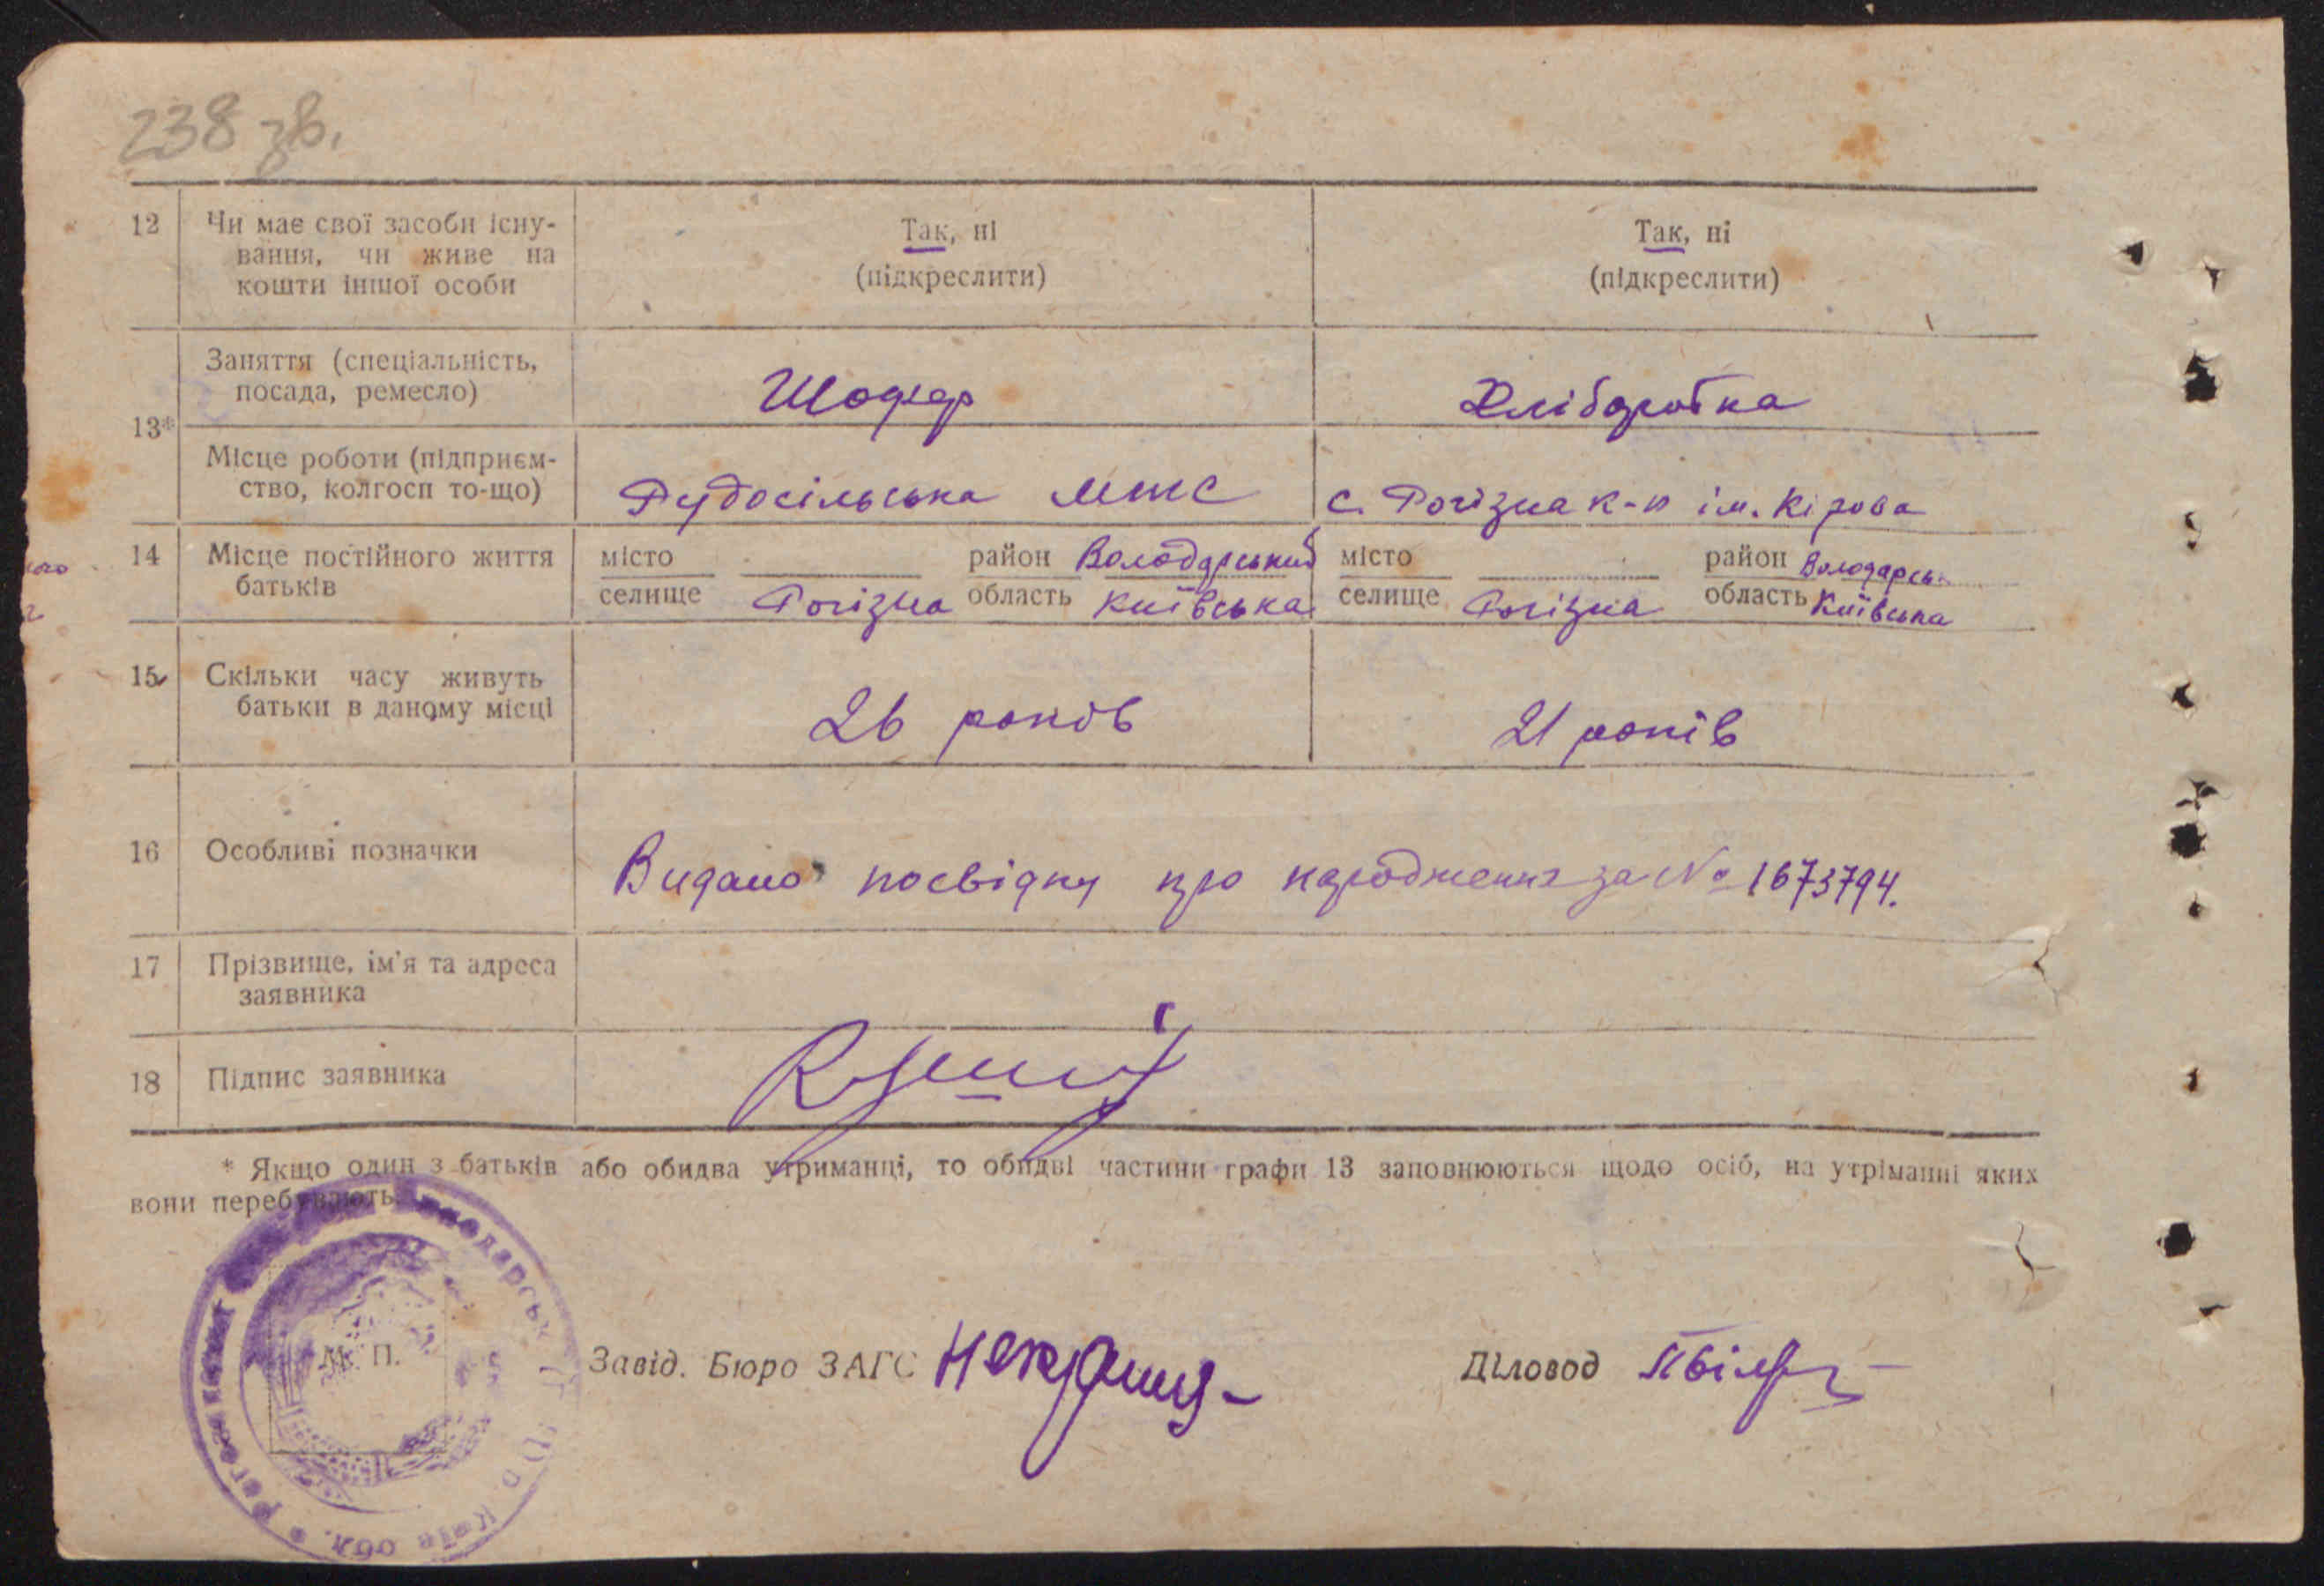 238 зв.
12 Чи має свої засоби існу- Так, ні Так, ні
вання, чи живе на (підкреслити) (підкреслити)
кошти іншої особи
Заняття (спеціальність, Шофер Хліборобка
посада, ремесло)
13*
Місце роботи (підприєм-
ство, колгосп то-що) Рудосільська МТС с. Рогізна к-п ім. Кірова
14 Місце постійного життя місто район Володарський місто район Володарськ
батьків селище Рогізна область Київська селище Рогізна область Київська
15 Скільки часу живуть
батьки в даному місці 26 років 21 років
16 Особливі позначки Видано посвідку про народження за № 1673794.
17 Прізвище, ім'я та адреса
заявника
18 Підпис заявника
* Якщо один з батьків або обидва утриманці, то обидві частини графи 13 заповнюються щодо осіб, на утріманні яких
вони перебувають.
М. П.
Завід. Бюро ЗАГС Діловод
Київ обл.